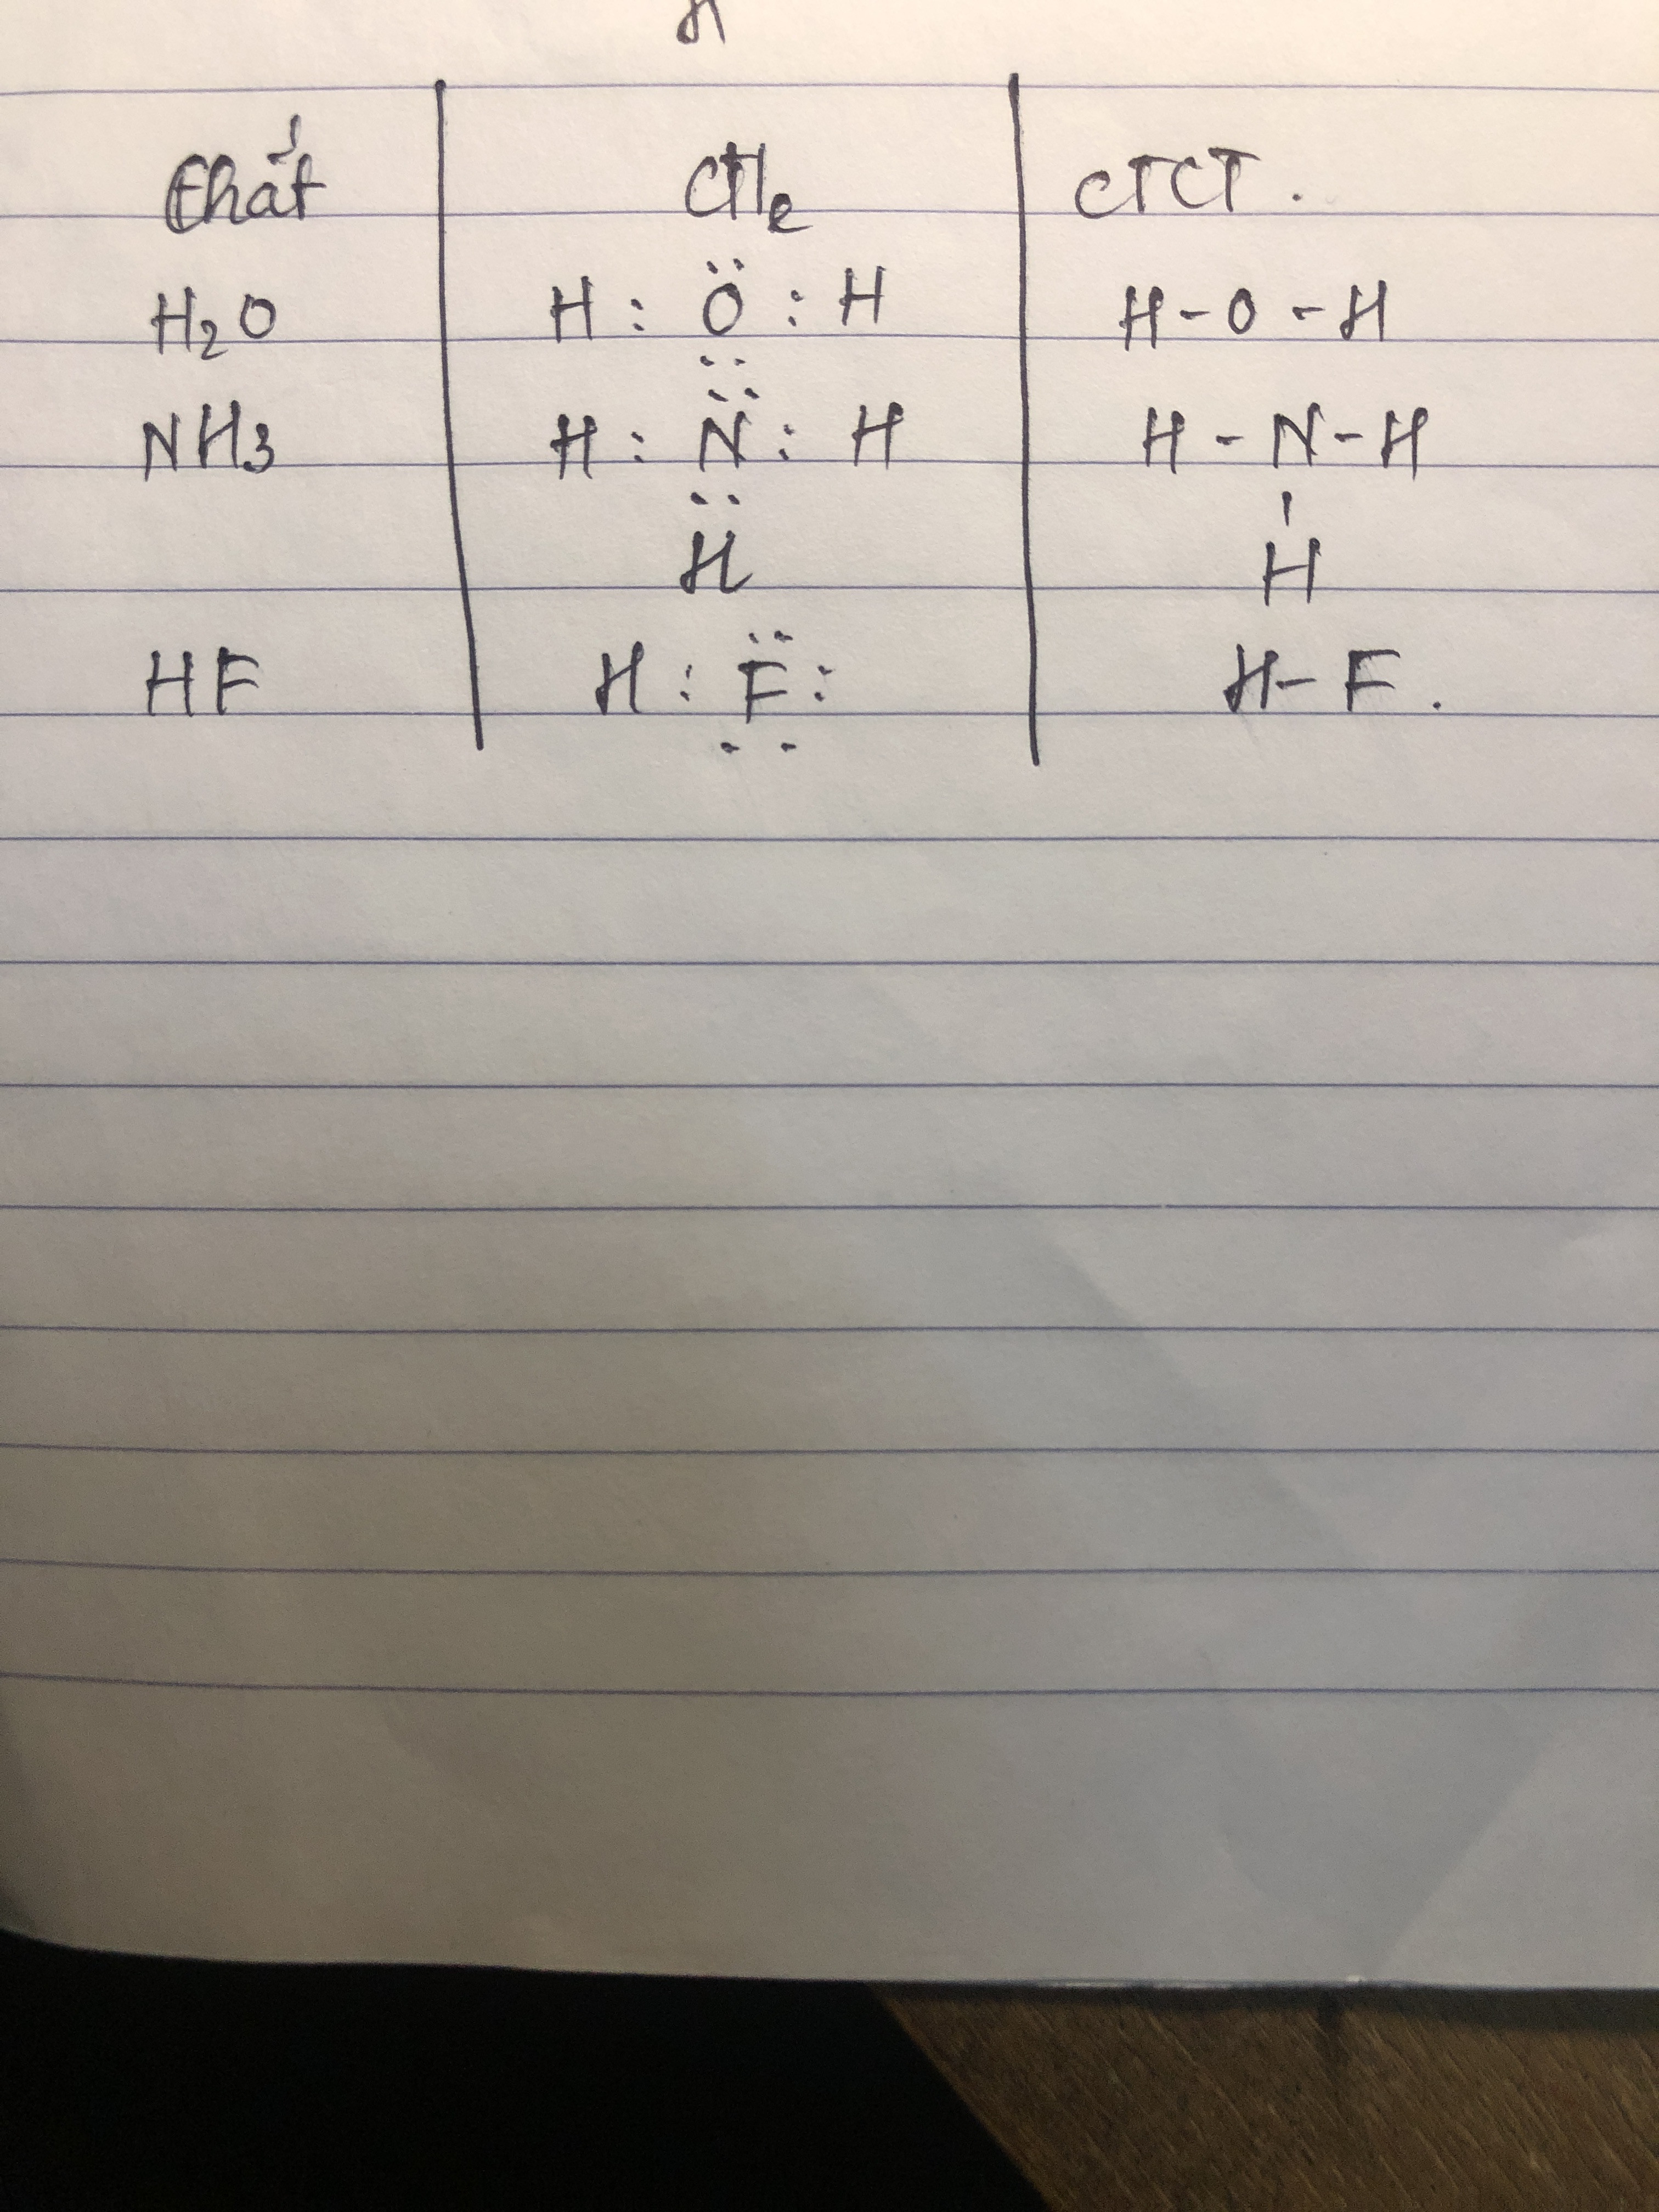 H
Chất CTe CTCT.
H₂O H : Ö : H H-O-H
.. 
NH3 H : N̈ : H H-N-H
.. '
H H
HF H : F̈ : H-F.
..